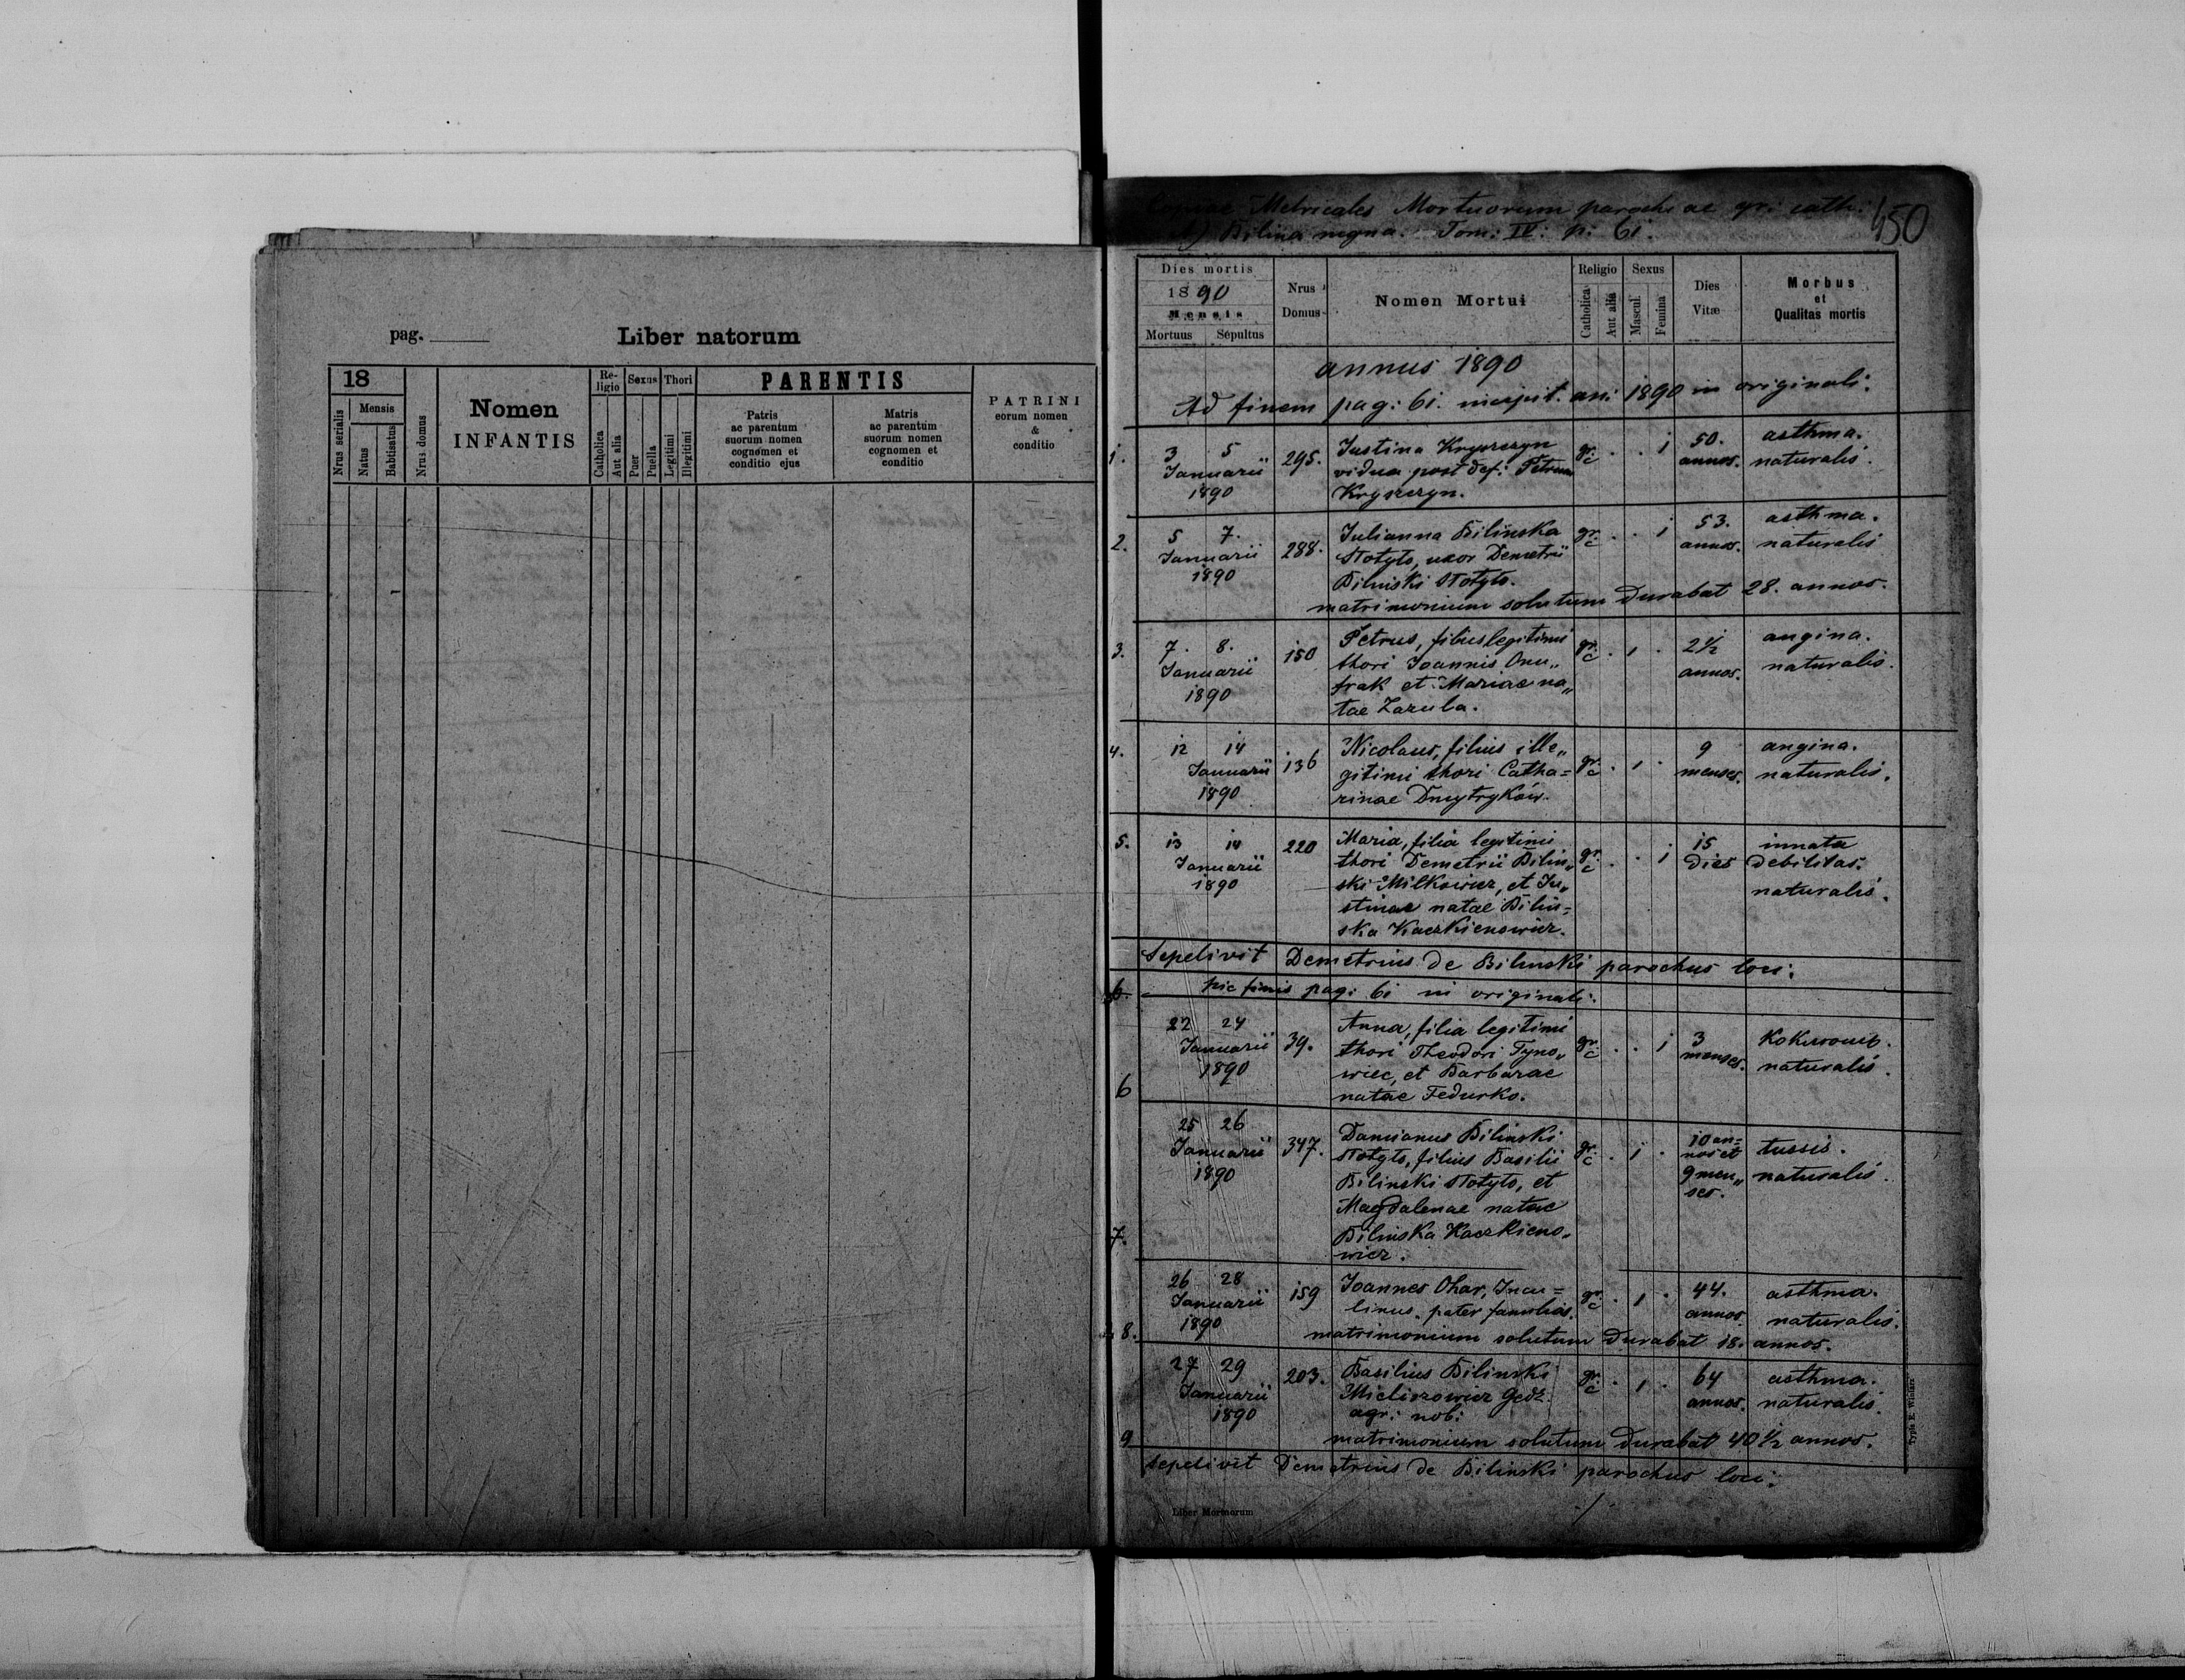 pag.
Liber natorum
18
Mensis
Nrus serialis
Natus
Babtisatus
Nrus domus
Nomen
INFANTIS
Re-
ligio
Catholica
Aut alia
Sexus
Puer
Puella
Thori
Legitimi
Illegitimi
PARENTIS
Patris
ac parentum
suorum nomen
cognomen et
conditio ejus
Matris
ac parentum
suorum nomen
cognomen et
conditio
PATRINI
eorum nomen
&
conditio
Copiae Metricales Mortuorum parochiae gr: cath:
A) Bilina magna. Tom: IV: p: 61.
450
Dies mortis
1890
Mensis
Mortuus Sepultus
Nrus
Domus
Nomen Mortui
Religio
Catholica
Aut alia
Sexus
Mascul.
Femina
Dies
Vitæ
Morbus
et
Qualitas mortis
annus 1890
Ad finem pag: 61. incipit. an: 1890 in originali.
1. 3 5 Januarii 1890 295. gr. c . . 1 50. annos. asthma. naturalis.
Justina Kryszczyn
vidua post def: Petrum
Kryszczyn.
2. 5 7. Januarii 1890 288. gr. c . . 1 53. annos. asthma. naturalis
Julianna Bilinska
Stotyto, uxor Demetrii
Bilinski Stotyto.
matrimonium solutum durabat 28. annos.
3. 7. 8. Januarii 1890 150 gr. c . 1 . 2 1/2 annos. angina. naturalis.
Petrus, filius legitimi
thori Joannis Onu„
frak et Mariae na„
tae Zazula.
4. 12 14 Januarii 1890 136 gr. c . 1 . 9 menses. angina. naturalis.
Nicolaus, filius ille„
gitimi thori Catha=
rinae Dmytryków.
5. 13 14 Januarii 1890 220 gr. c . . 1 15 dies innata debilitas. naturalis.
Maria, filia legitimi
thori Demetrii Bilin„
ski Milkowicz, et Ju„
stinae natae Bilin=
ska Kaczkienowicz.
Sepelivit Demetrius de Bilinski parochus loci.
6. hic finis pag: 61 in originali.
6 22 24 Januarii 1890 39. gr. c . . 1 3 menses. naturalis.
Anna, filia legitimi
thori Theodori Tyno„
wiec, et Barbarae
natae Fedurko.
7. 25 26 Januarii 1890 347. gr. c . 1 . 10 an= nos et 9 men„ ses. tussis. naturalis.
Damianus Bilinski
Stotyto, filius Basilii
Bilinski Stotyto, et
Magdalenae natae
Bilinska Kaczkieno„
wicz.
8. 26 28 Januarii 1890 159 gr. c . 1 . 44. annos. asthma. naturalis.
Joannes Ohar, Inqu=
linus, pater familias.
matrimonium solutum durabat 18. annos.
9 27 29 Januarii 1890 203. gr. c . 1 . 64 annos. asthma. naturalis.
Basilius Bilinski
Mieliszowicz Gedz.
agr: nob:
matrimonium solutum durabat 40 1/2 annos.
sepelivit Demetrius de Bilinski parochus loci.
Liber Mormorum